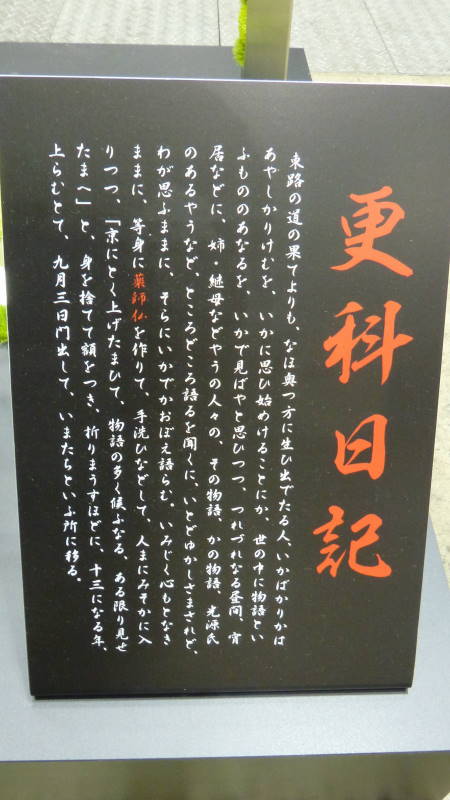 更科日記
東路の道の果てよりも、なほ奥つ方に生ひ出でたる人、いかばかりかは
あやしかりけむを、いかに思ひ始めけることにか、世の中に物語とい
ふもののあなるを、いかで見ばやと思ひつつ、つれづれなる昼間、宵
居などに、姉・継母などやうの人々の、その物語、かの物語、光源氏
のあるやうなど、ところどころ語るを聞くに、いとどゆかしさまされど、
わが思ふままに、そらにいかでかおぼえ語らむ。いみじく心もとなき
ままに、等身に薬師仏を作りて、手洗ひなどして、人まにみそかに入
りつつ、「京にとく上げたまひて、物語の多く候ふなる、ある限り見せ
たまへ」と、身を捨てて額をつき、祈りまうすほどに、十三になる年、
上らむとて、九月三日門出して、いまたちといふ所に移る。